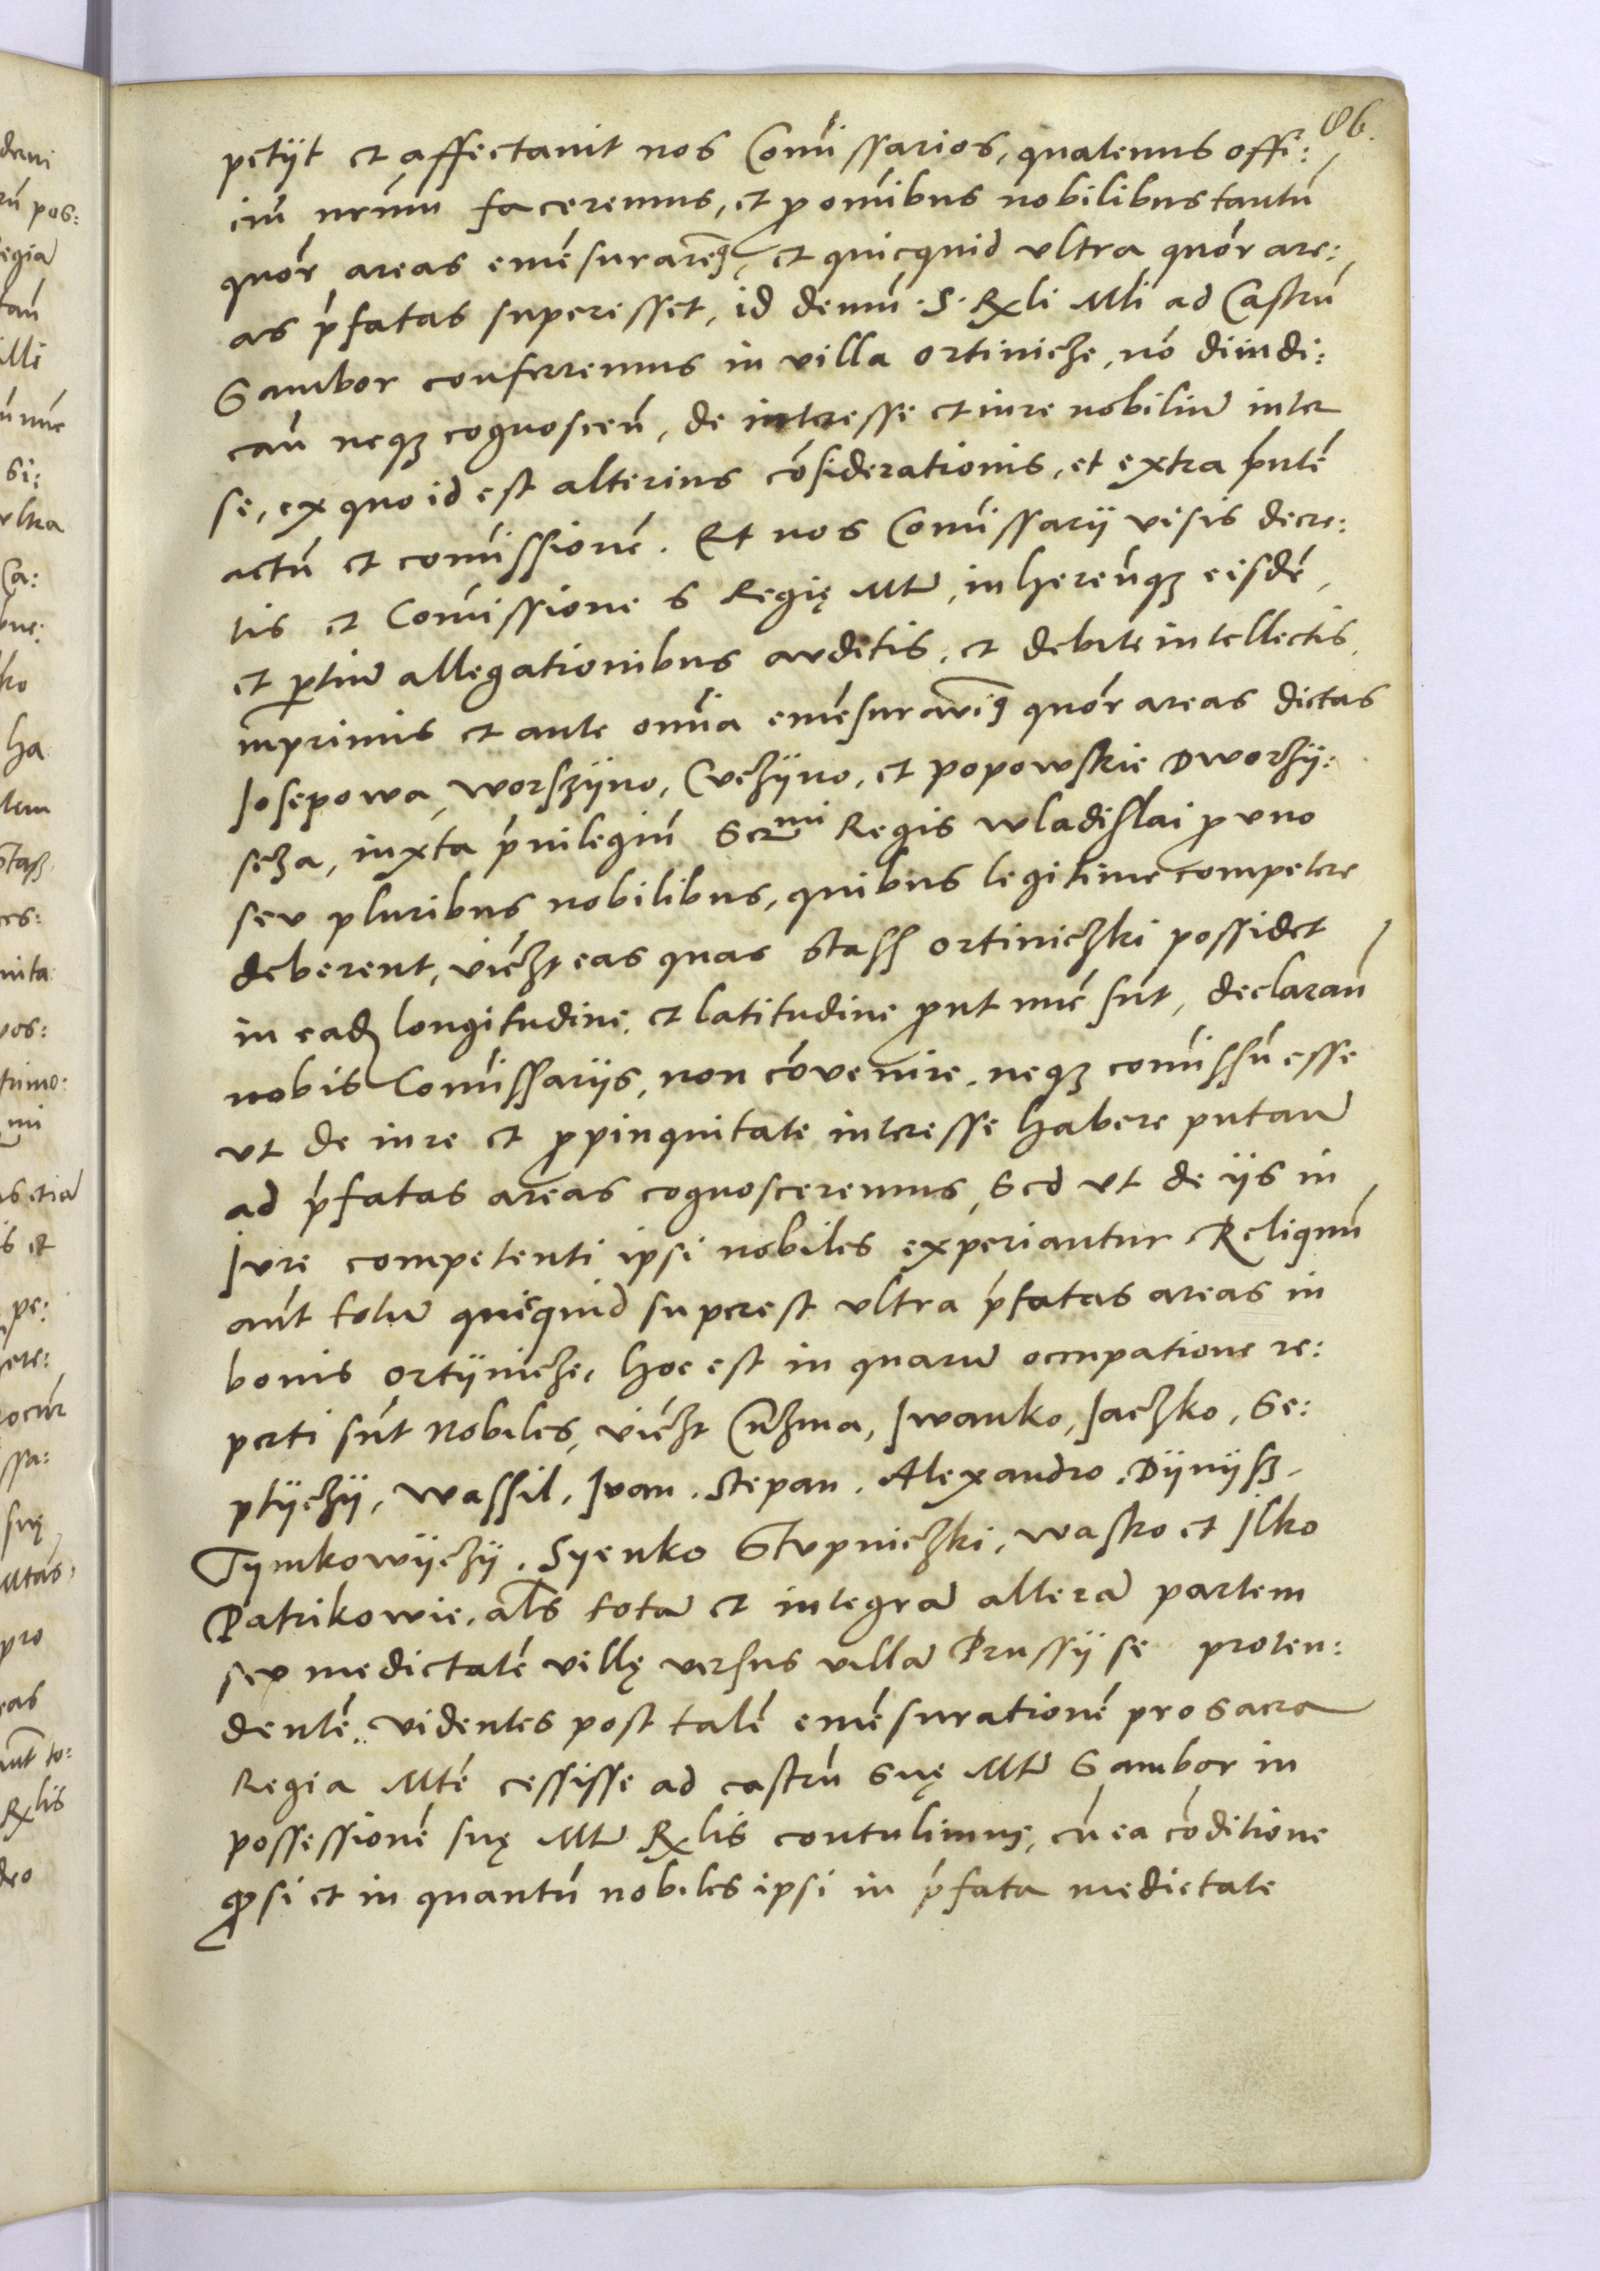 petijt et affectauit nos Comissarios, quatenus offi:
ciū nrm̄ faceremus, et p omībus nobilibus tantū
quōr areas emēsuraremꝰ, et quicquid vltra quōr are:
as p̄fatas superesset, id demū S. Rx̄li Mti ad Castrū
Sambor conferremus in villa ortinicze, nō diiudi:
can̄ neqꝫ cognoscen̄, de interesse et iure nobiliū inter
se, ex quo id est alterius cōsiderationis, et extra pn̄tē
actū et comissionē. Et nos Comissarij visis decre:
tis et Comissione S Regię Mtis, inheren̄qꝫ eisdē,
et ptiū allegationibus auditis, et debite intellectis,
inprimis et ante omīa emēsurauimꝰ quōr areas dictas
Josepowa, worszijno, Cuchijno, et popowskie Dworzij:
scza, iuxta p̄uilegiū Sermi Regis wladislai p vno
seu pluribus nobilibus, quibus legitime competere
deberent, viczt eas quas Stass ortiniczki possidet
in eadꝫ longitudine, et latitudine put nūc sūt, declaran̄
nobis Comissarijs, non cōuenire, neqꝫ comissū esse
vt de iure et ppinquitate interesse habere putan̄
ad p̄fatas areas cognosceremus, Sed vt de ijs in
Jure competenti ipsi nobiles experiantur Reliquū
aūt totū quicquid superest vltra p̄fatas areas in
bonis ortijnicze, hoc est in quarū occupatione re:
perti sūt Nobiles, viczt Cuzma, Jwanko, Jaczko, Se:
ptijczij, wassil, Jvan, Stepan, Alexandro, Dijnijsz,
Tymkowijczij, Syenko Stupniczki, wasko et Jlko
Patrikowie, als totā et integrā alterā partem
seu medietatē villę versus villā Prussij se proten:
dentē, videntes post talē emēsurationē pro sacra
Regia Mtē cessisse ad castrū Suę Mtis Sambor in
possessionē suę Mtis Rx̄lis contulimus, cū ea cōditione
qꝫ si et in quantū nobiles ipsi in p̄fata medietate